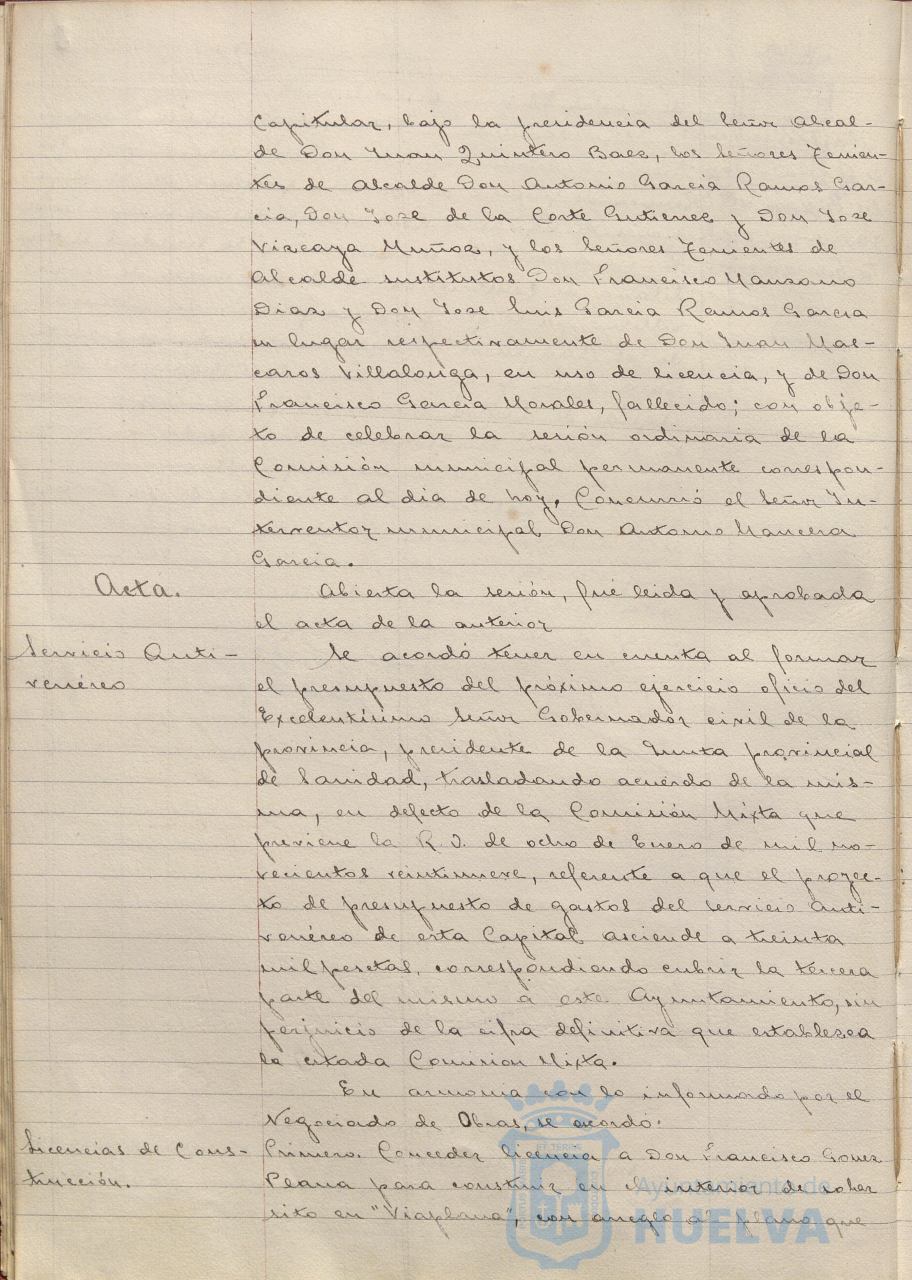 Capitular, bajo la presidencia del Señor Alcal-
de Don Juan Quintero Baez, los Señores Tenien-
tes de Alcalde Don Antonio Garcia Ramos Gar-
cia, Don Jose de la Corte Gutierrez y Don Jose
Vizcaya Muñoz, y los Señores Tenientes de
Alcalde sustitutos Don Francisco Manzano
Diaz y Don Jose Luis Garcia Ramos Garcia
en lugar respectivamente de Don Juan Mas-
caros Villalonga, en uso de licencia, y de Don
Francisco Garcia Morales, fallecido; con obje-
to de celebrar la sesión ordinaria de la
Comisión municipal permanente correspon-
diente al dia de hoy. Concurrió el Señor In-
terventor municipal Don Antonio Mancera
Garcia.
Acta.
Abierta la sesión, fué leida y aprobada
el acta de la anterior
Servicio Anti-
venéreo
Se acordó tener en cuenta al formar
el presupuesto del próximo ejercicio oficio del
Excelentísimo Señor Gobernador civil de la
provincia, presidente de la Junta provincial
de Sanidad, trasladando acuerdo de la mis-
ma, en defecto de la Comisión Mixta que
previene la R. O. de ocho de Enero de mil no-
vecientos veintinueve, referente a que el proyec-
to de presupuesto de gastos del Servicio Anti-
venéreo de esta Capital asciende a treinta
mil pesetas, correspondiendo cubrir la tercera
parte del mismo a este Ayuntamiento, sin
perjuicio de la cifra definitiva que establezca
la citada Comision Mixta.
En armonia con lo informado por el
Negociado de Obras, se acordó:
Licencias de Cons-
trucción.
Primero. Conceder licencia a Don Francisco Gomez
para construir en el interior de
sito en "Viaplana", con arreglo al plano que
Ayuntamiento de
HUELVA